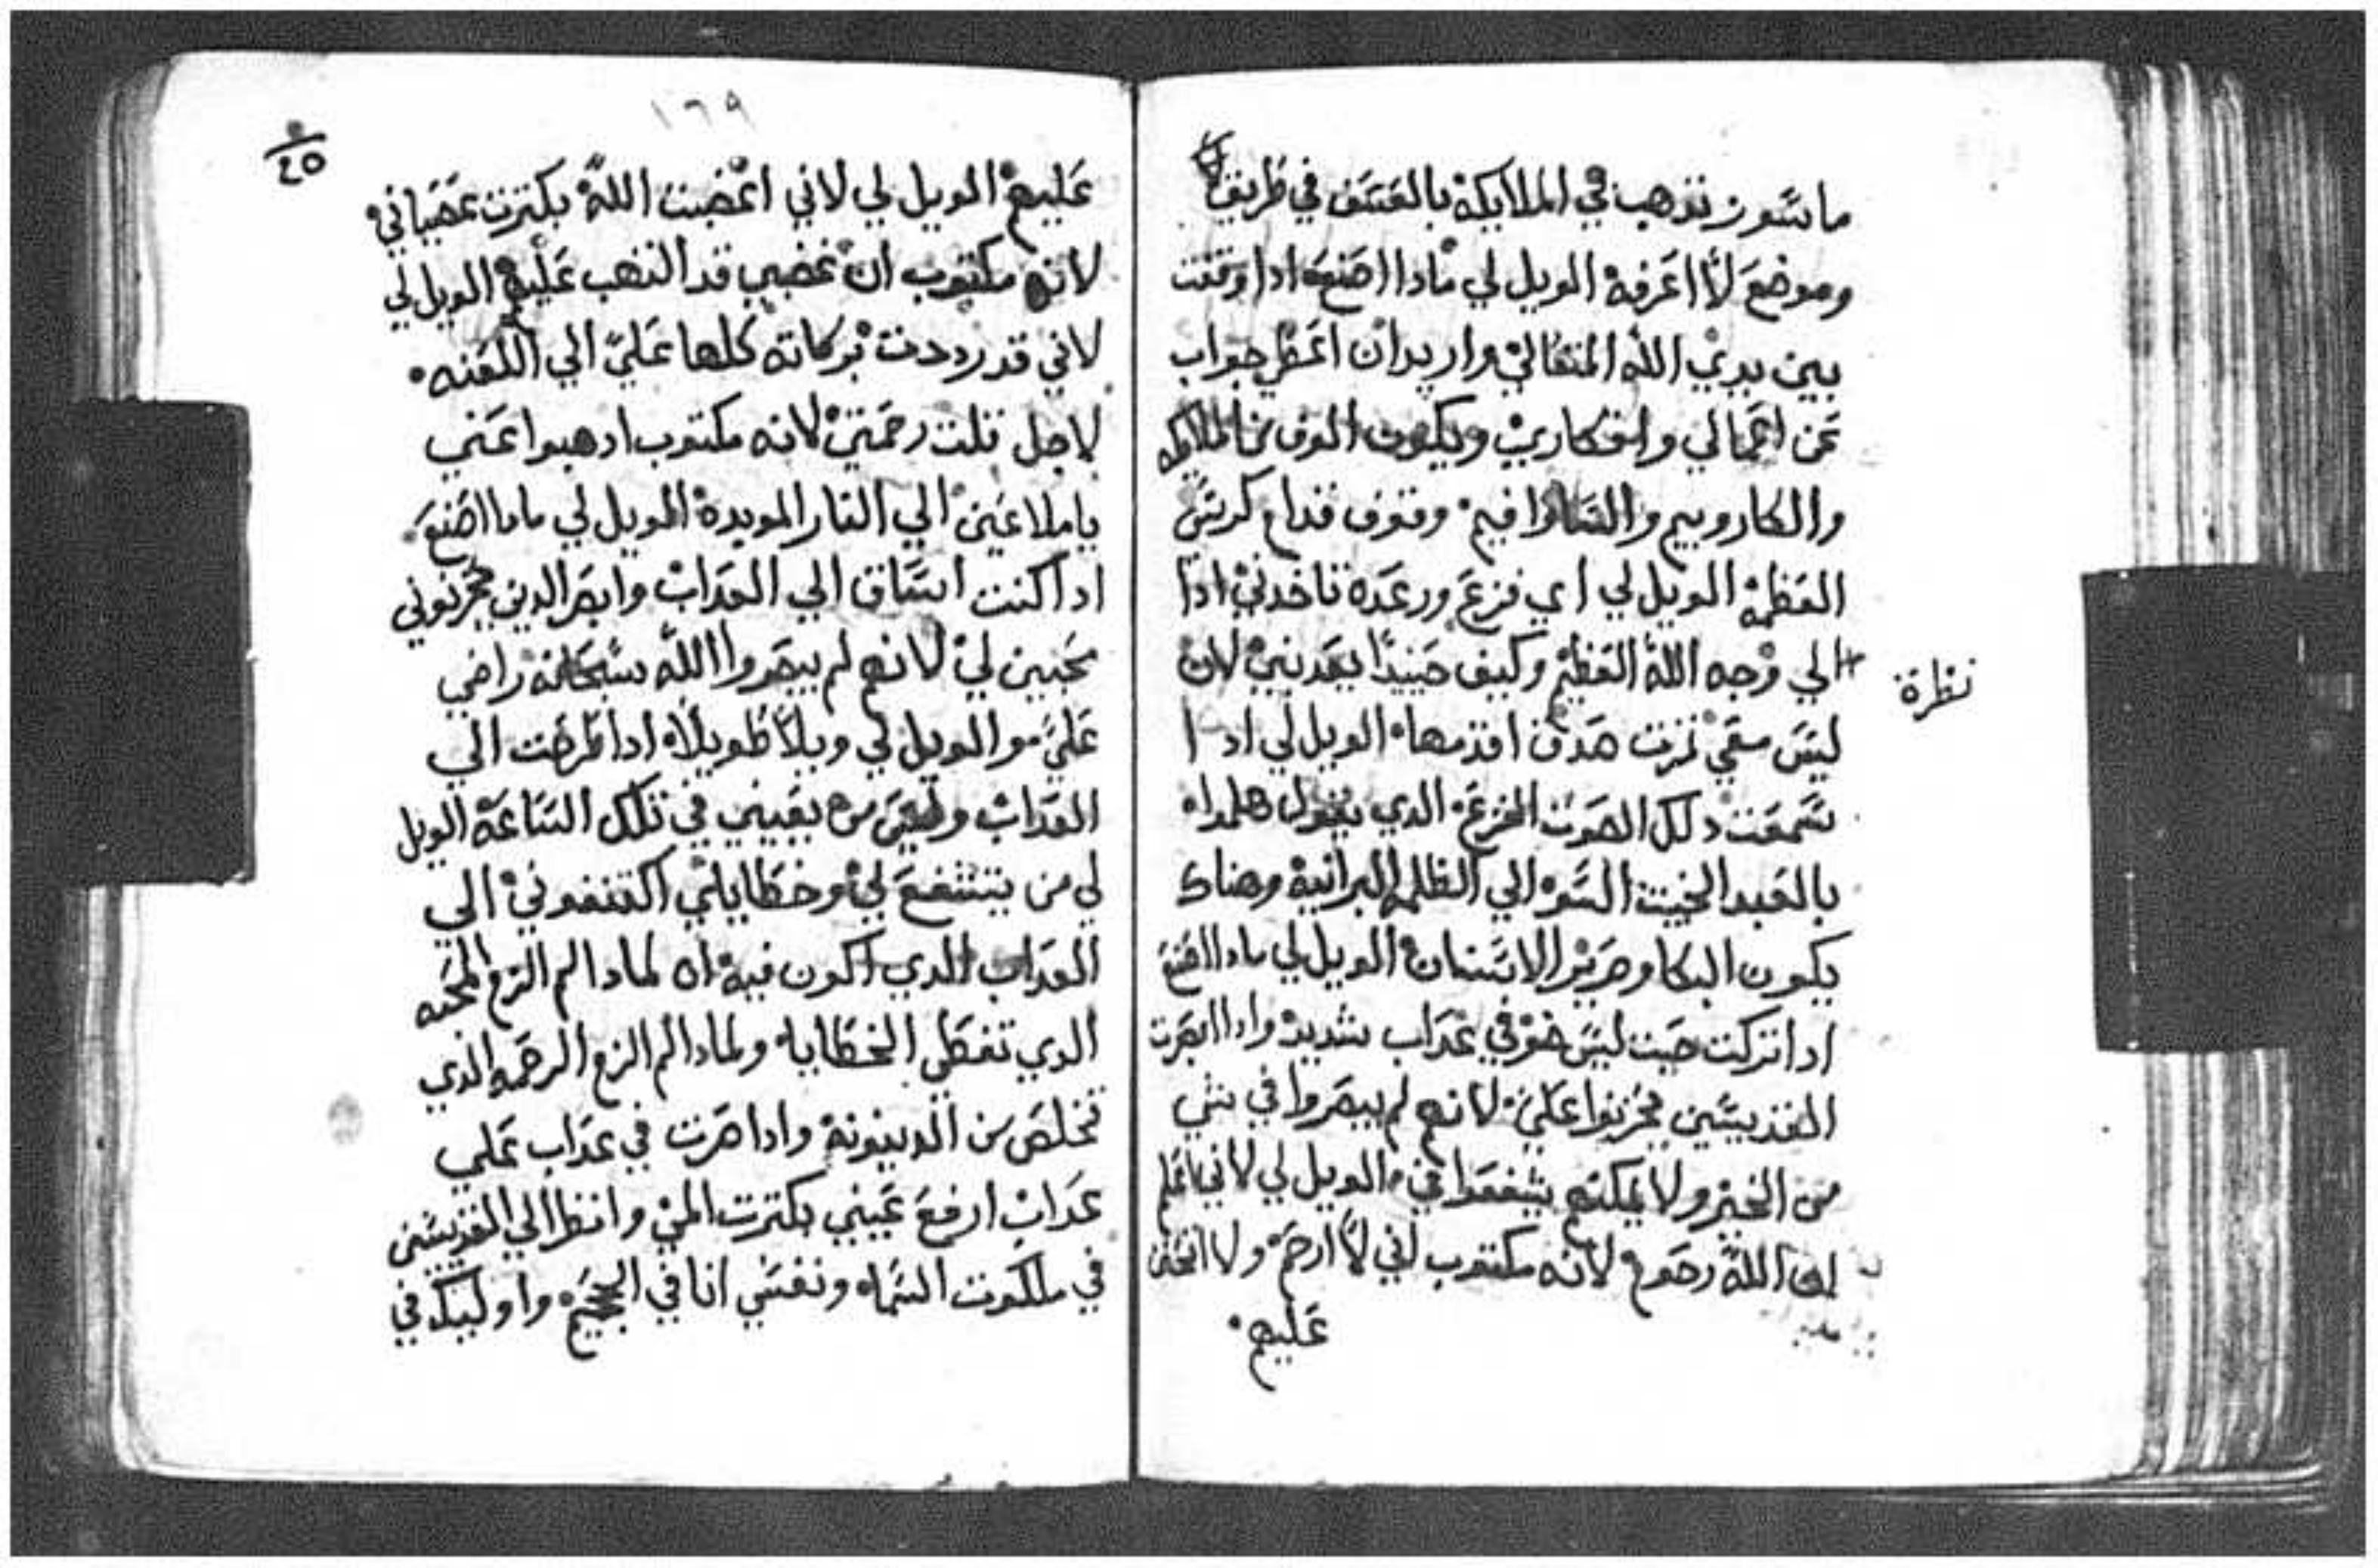 ماسور تذهب في الملايكة بالعسف في طريق لا
وموضع لا اعرفه الويل لي مادا اصنع ادا وقفت
بين يدي الله المتعالي واريد ان اعطي جواب
عن اعمالي وافكاري ويكون الوف من الملايكه
والكاروبيم والساروافيم وقوف قدام كرسي
العظمه الويل لي اي فزع ورعده تاخدني ادا
نظرة
الي وجه الله العظيم وكيف حينيدا يعدبني لان
ليس معي تمرت صدق اقدمها الويل لي ادا
سمعت دلك الصوت المفزع الدي يقول هلموا
بالعبد الخبيت السو الي الظلمه البرانية وهناك
يكون البكا وصرير الاسنان الويل لي مادا اصنع
ادا تركت حيت ليس ضو في عداب شديد وادا ابصرت
القديسين يحزنوا علي لانهم لم يبصروا في شي
من الخير ولا يمكنهم يشفعوا في الويل لي لاني اعلم
ان الله رحوم لانه مكتوب اني لا ارحم ولا اتحنن
عليهم
١٦٩
عليهم الويل لي لاني اغضبت الله بكترت عصياني
لانه مكتوب ان غضبي قد التهب عليهم الويل لي
لاني قد رددت بركاته كلها علي الي اللعنه
لاجل قلت رحمتي لانه مكتوب ادهبوا عني
ياملاعين الي النار الموبدة الويل لي مادا اصنع
ادا كنت اساق الي العداب وابصر الدين يحزنوني
محبين لي لانهم لم يبصروا الله سبحانه راضي
علي مو الويل لي ويلا طويلا ادا طرحت الي
العداب وليس من يغيبني في تلك الساعة الويل
لي من يتشفع لي وخطاياي اكتنفوني الي
العداب الدي اكون فيه اه لمادا لم الزم المحبه
الدي تغطي الخطايا ولمادا لم الزم الرحمه الدي
تخلص من الدينونة وادا صرت في عداب علي
عداب ارفع عيني بكترت المي وانظر الي القديسين
في ملكوت السماء ونفسي انا في الجحيم واوليك في